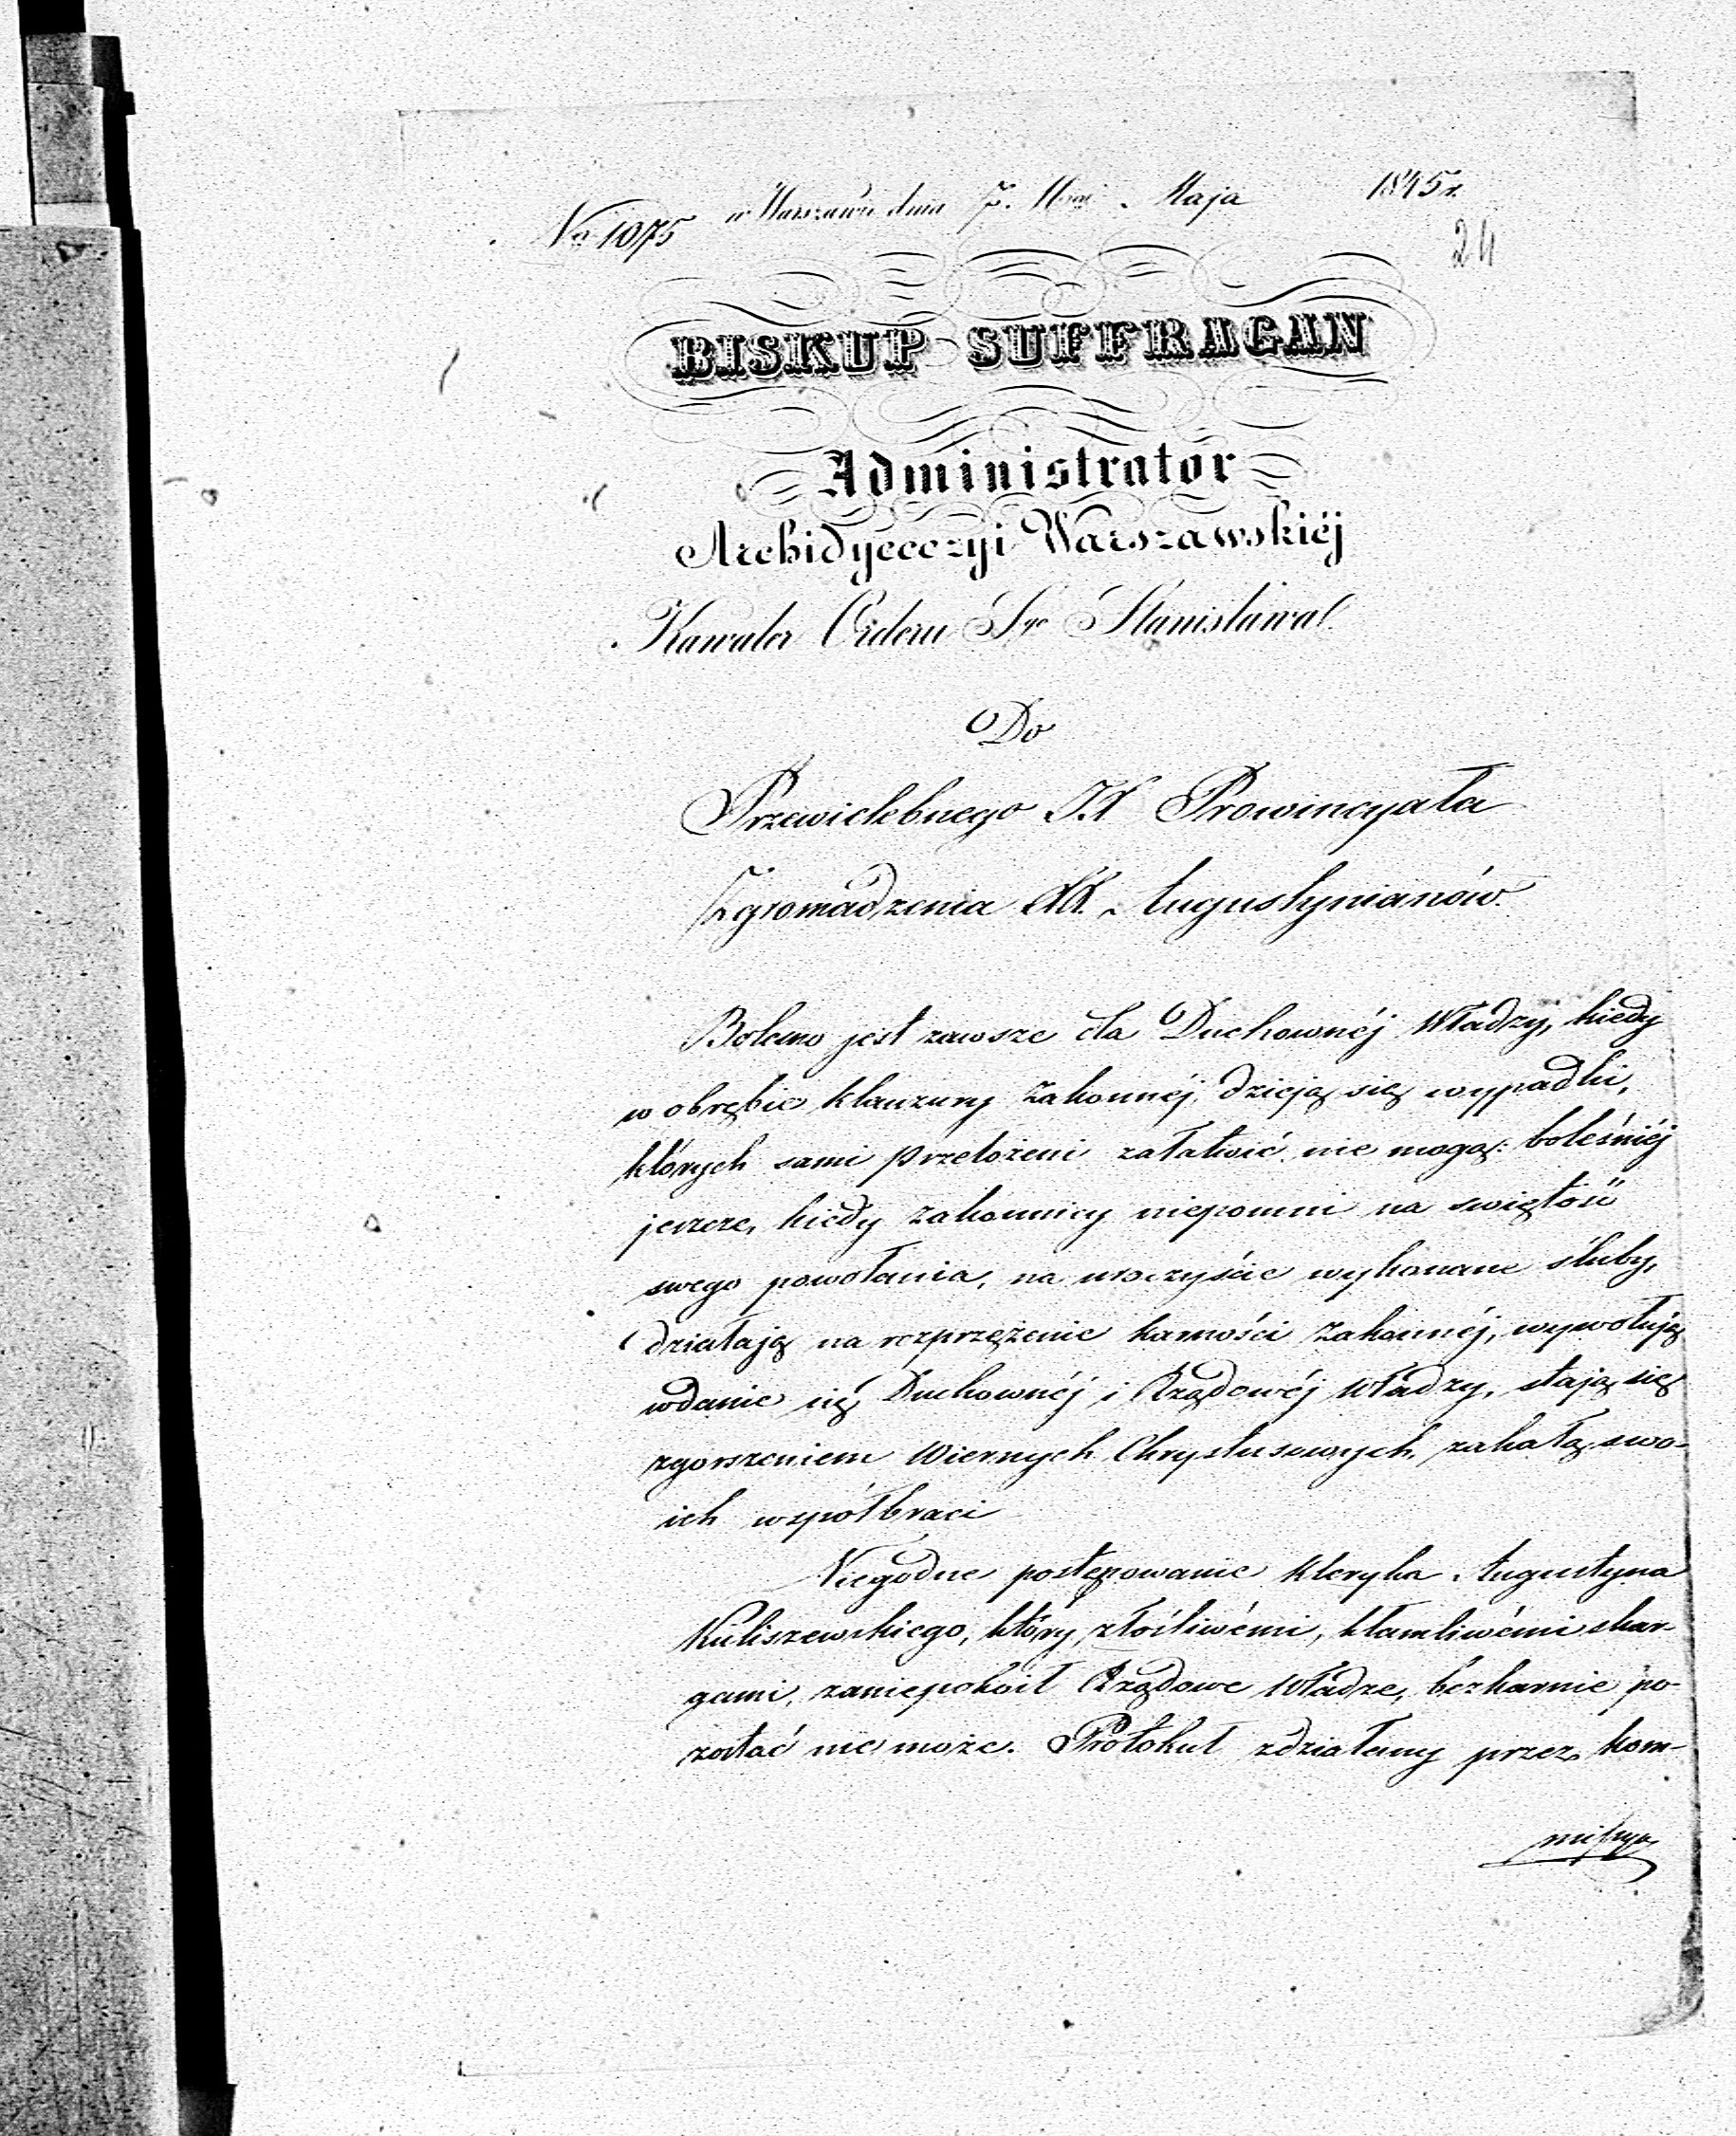 No 1075 w Warszawie dnia 7. Maja 1845 r.
24
BISKUP SUFFRAGAN
Administrator
Archidyecezyi Warszawskiéj
Kawaler Orderu Sgo Stanisława
Do
Przewielebnego JX Prowincyała
Zgromadzenia XX. Augustynianów.
Bolesno jest zawsze dla Duchownéj Władzy, kiedy
w obrębie klauzury Zakonnéj, dzieją się wypadki,
których sami przełożeni załatwić nie mogą: boleśniéj
jeszcze, kiedy zakonnicy niepomni na swiętość
swego powołania, na uroczyście wykonane śluby,
działają na rozprzężenie karności Zakonnéj, wywołują
wdanie się Duchownéj i Rządowéj Władzy, stają się
zgorszeniem Wiernych Chrystusowych, zakałą swo-
ich współbraci
Niegodne postępowanie Kleryka Augustyna
Kuliszewskiego, który złośliwémi, kłamliwémi skar-
gami, zaniepokoił Rządowe Władze, bezkarnie po-
zostać nie może. Protokuł zdziałany przez kom-
missyą